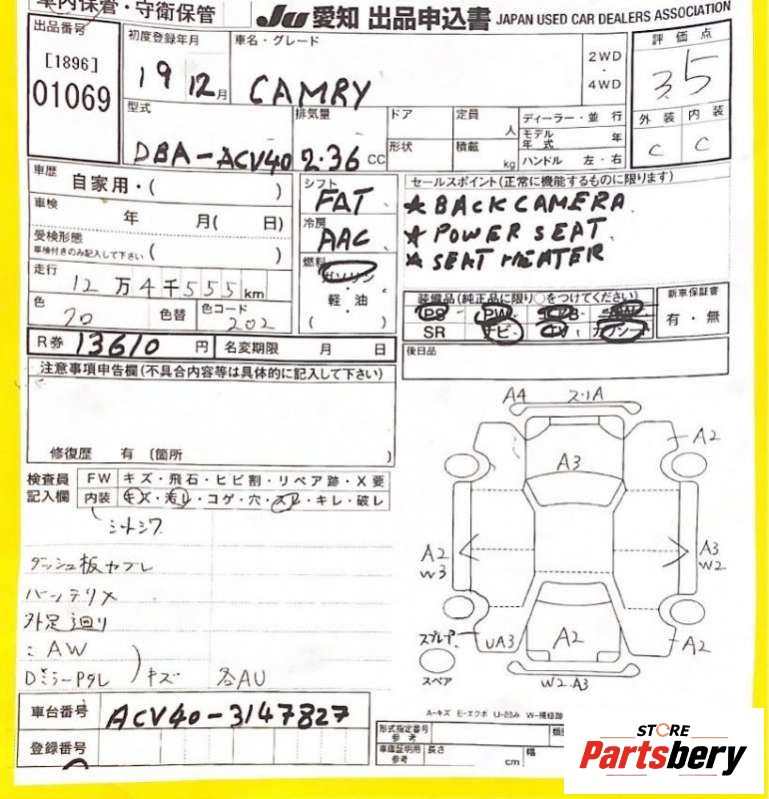 車内保管・守衛保管
JU 愛知 出品申込書 JAPAN USED CAR DEALERS ASSOCIATION
出品番号
[1896]
01069
初度登録年月
19 12月
車名・グレード
CAMRY
2WD
・
4WD
評価点
3.5
外装 内装
C C
型式
DBA-ACV40
排気量
2.36 CC
ドア
形状
定員
人
積載
kg
ディーラー・並 行
モデル年式 年
ハンドル 左・右
車歴
自家用・( )
車検
年 月( 日)
受検形態
車検付きのみ記入して下さい ( )
走行
12万4千555km
色
色替
色コード
202
シフト
FAT
冷房
AAC
燃料
ガソリン
軽・油
( )
セールスポイント(正常に機能するものに限ります)
★ BACK CAMERA
★ POWER SEAT
★ SEAT HEATER
装備品(純正品に限り○をつけてください)
PS PW
SR ナビ TV カワシート
新車保証書
有・無
後日品
R券 13610円
名変期限 月 日
注意事項申告欄(不具合内容等は具体的に記入して下さい)
修復歴 有 (箇所
検査員
記入欄
FW キズ・飛石・ヒビ割・リペア跡・X要
内装 キズ・汚レ・コゲ・穴・スレ・キレ・破レ
ダッシュ板
外足廻り
AW
キズ 各AU
A4 2.1A
A2
A3
A2
W3
A3
W2
UA3
A2
A2
スペア
W2.A3
A-キズ E-エクボ
車台番号 ACV40-3147827
登録番号
形式指定番号
参考
車庫証明用
参考
長さ
cm
幅
STORE
Partsbery